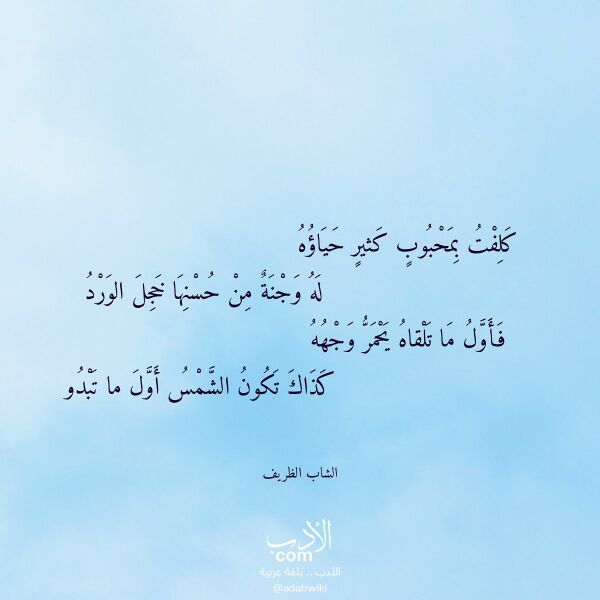 كَلِفْتُ بِمَحْبُوبٍ كَثيرٍ حَيَاؤُهُ
لَهُ وَجْنَةٌ مِنْ حُسْنِهَا خَجِلَ الوَرْدُ
فَأَوَّلُ مَا تَلْقاهُ يَحْمَرُّ وَجْهُهُ
كَذَاكَ تَكُونُ الشَّمْسُ أَوَّلَ ما تَبْدُو
الشاب الظريف
الأدب
.com
الأدب .. بلغة عربية
@adabwiki